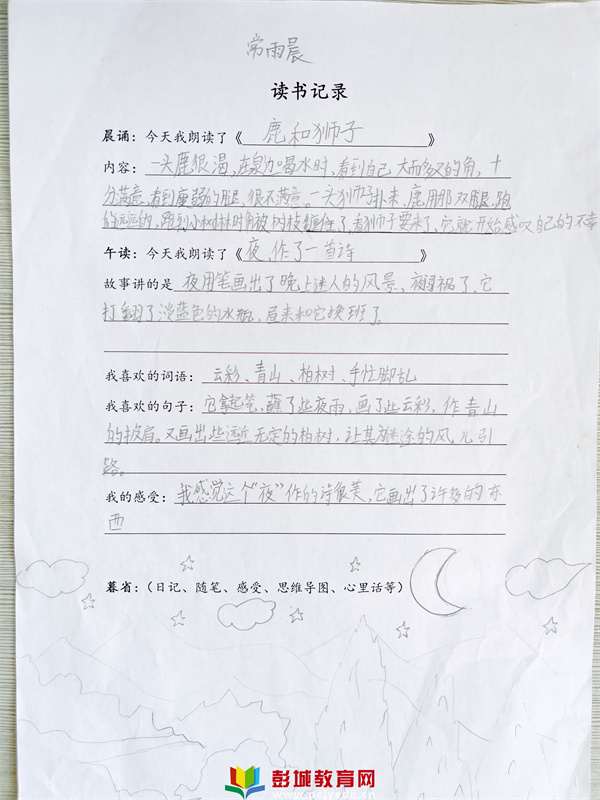 常雨晨
读书记录
晨诵：今天我朗读了《 鹿和狮子 》
内容：一头鹿很渴,在泉边喝水时,看到自己大而多叉的角,十
分满意,看到瘦弱的腿,很不满意。一头狮子扑来,鹿用那双腿,跑
的远远的,跑到小树林时角被树枝缠住了,看狮子要来了,它就开始感叹自己的不幸
午读：今天我朗读了《 夜,作了一首诗 》
故事讲的是 夜用笔画出了晚上迷人的风景、夜闯祸了,它
打翻了淡蓝色的水瓶,后来和它换班了。
我喜欢的词语：云彩、青山、柏树、手忙脚乱
我喜欢的句子：它拿起笔,蘸了些夜雨,画了些云彩,作青山
的披肩。又画出些远近无定的柏树,让其迷途的风儿引
路。
我的感受：我感觉这个"夜"作的诗很美,它画出了许多的东
西
暮省：（日记、随笔、感受、思维导图、心里话等）
彭城教育网